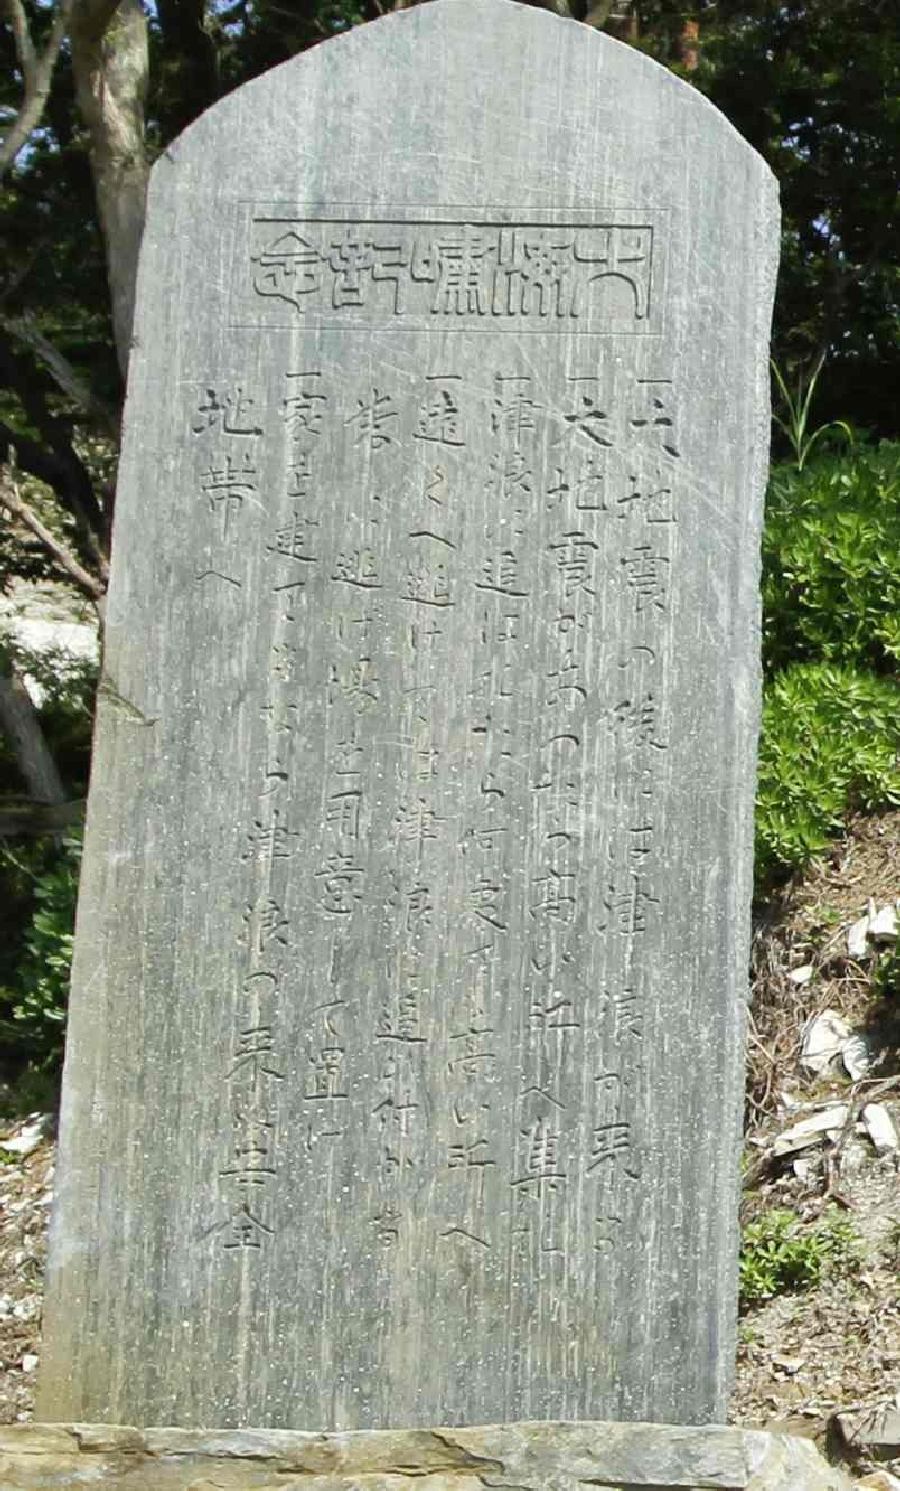 大海嘯記念
一大地震の後には津浪が来る
一大地震があつたら高い所へ集れ
一津浪に追はれたら何處でも高い所へ
一遠くへ逃げては津浪に追ひ付かる
常に逃げ場を用意して置け
一家を建てるなら津浪の来ぬ安全
地帯へ